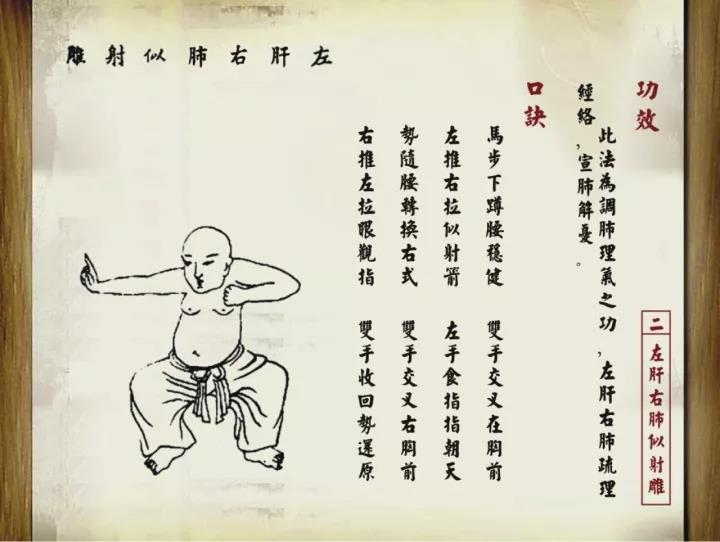 左肝右肺似射雕
二 左肝右肺似射雕
功效
此法為調肺理氣之功，左肝右肺疏理
經絡，宣肺解憂。
口訣
馬步下蹲腰穩健 雙手交叉在胸前
左推右拉似射箭 左手食指指朝天
勢隨腰轉換右式 雙手交叉右胸前
右推左拉眼觀指 雙手收回勢還原